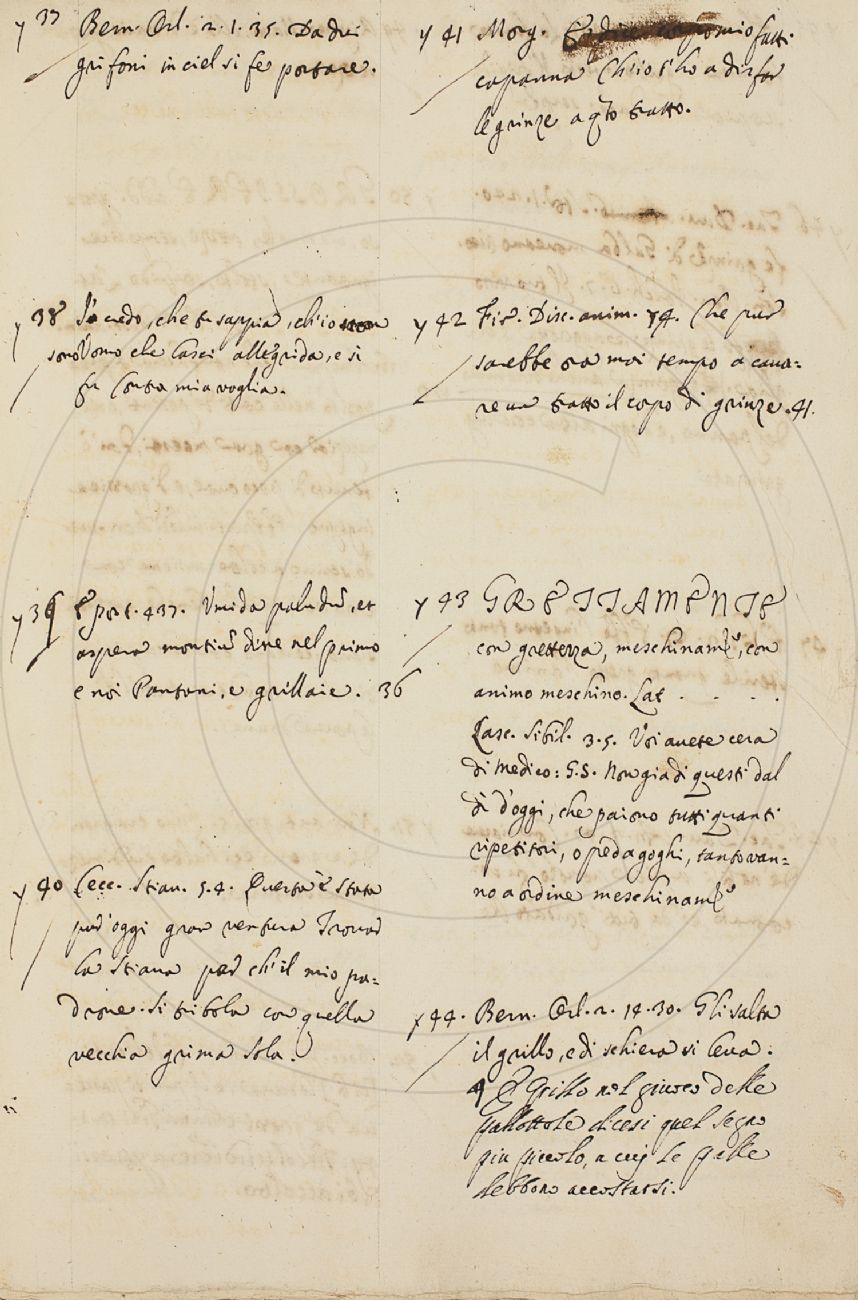 y 37 Bern. Orl. 2. 1. 35. Da dui
grifoni in ciel si fe portare.
y 38 Io credo, che tu sappia, ch'io non
sono Uomo che lasci alle grida, e si
fu contra mia voglia.
y 39 port. 437. Umida paludũ, et
aspera montiũ dire nel primo
e noi Pantani, e grillaie. 36
y 40 Cecc. Stiav. 5. 4. Questa è stata
pur oggi gran ventura Trovar
la stiava per ch'il mio pa=
drone. Si tribola con quella
vecchia grima sola.
y 41 Morg. mio fatti
capanna Ch'io t'ho a disfar
le grinze a q̃to tratto.
y 42 Fir. Disc. anim. 74. Che pur
sarebbe ora mai tempo a cava=
re un tratto il corpo di grinze. 41.
y 43 GRETTAMENTE
con grettezza, meschinam.e, con
animo meschino. Lat . . . .
Lasc. Sibil. 3. 5. Voi avete cera
di Medico: G. S. Non già di questi dal
dì d'oggi, che paiono tutti quanti
ripetitori, o pedagoghi, tanto van=
no a ordine meschinam.e
y 44. Bern. Orl. 2. 14. 30. Gli salta
il grillo, e di schiera si leva.
E Grillo nel giuoco delle
Pallottole dicesi quel segno
più piccolo, a cui le palle
debbono accostarsi.